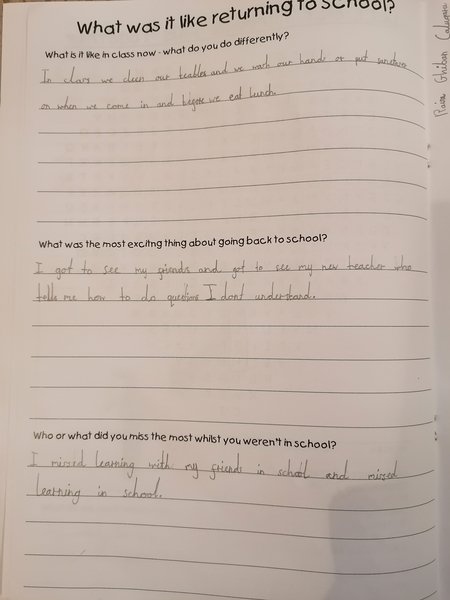 What was it like returning to school?
What is it like in class now - what do you do differently?
In class we clean our teables and we wash our hands or put sanitiser
on when we come in and before we eat lunch.
What was the most excitng thing about going back to school?
I got to see my friends and got to see my new teacher who
tells me how to do questions I dont understand.
Who or what did you miss the most whilst you weren't in school?
I missed learning with my friends in school and missed
learning in school.